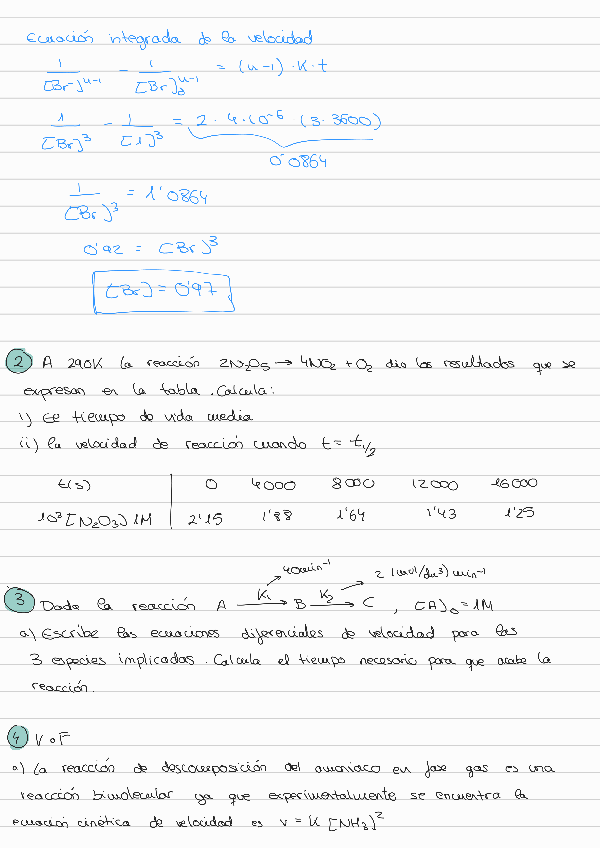 Ecuación integrada de la velocidad
1/[Br]^(n-1) - 1/[Br]₀^(n-1) = (n-1) · K · t
1/[Br]³ - 1/[1]³ = 2 · 4 · 10⁻⁶ (3 · 3600)
0'0864
1/[Br]³ = 1'0864
0'92 = [Br]³
[Br] = 0'97
2 A 290K la reacción 2N₂O₅ → 4NO₂ + O₂ dio los resultados que se
expresan en la tabla. Calcula:
i) El tiempo de vida media
ii) la velocidad de reacción cuando t = t₁/₂
t(s) 0 4000 8000 12000 16000
10³ [N₂O₃] 1M 2'15 1'88 1'64 1'43 1'25
40min⁻¹ 2 (mol/dm³) min⁻¹
3 Dada la reacción A —K₁→ B —K₂→ C , [A]₀ = 1M
a) Escribe las ecuaciones diferenciales de velocidad para las
3 especies implicadas. Calcula el tiempo necesario para que acabe la
reacción.
4 V o F
a) La reacción de descomposición del amoniaco en fase gas es una
reacción bimolecular ya que experimentalmente se encuentra la
ecuación cinética de velocidad es v = K [NH₃]²